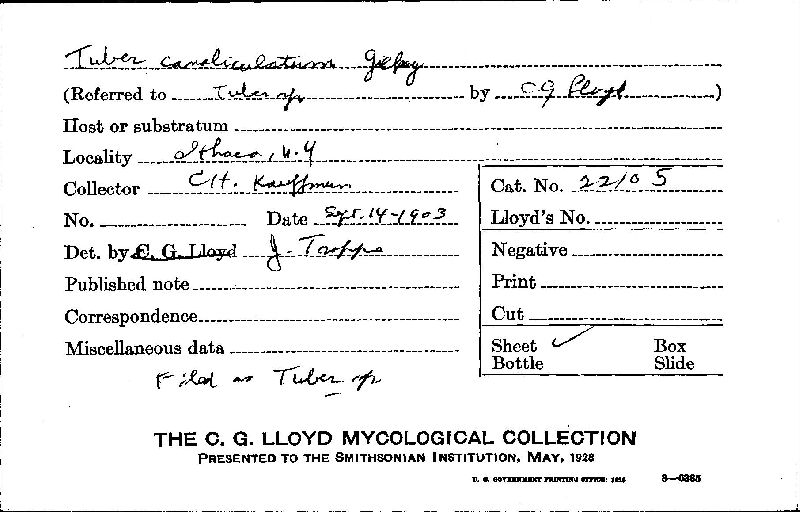 Tuber canaliculatum Gilkey
(Referred to Tuber sp by C G Lloyd )
Host or substratum
Locality Ithaca, N.Y
Collector C.H. Kauffman
Cat. No. 22105
No. Date Sept. 14-1903
Lloyd's No.
Det. by C. G. Lloyd J. Trappe
Negative
Published note
Print
Correspondence
Cut
Miscellaneous data
Sheet ✓ Box
Bottle Slide
Filed as Tuber sp
THE C. G. LLOYD MYCOLOGICAL COLLECTION
PRESENTED TO THE SMITHSONIAN INSTITUTION, MAY, 1928
U. S. GOVERNMENT PRINTING OFFICE: 8—0365